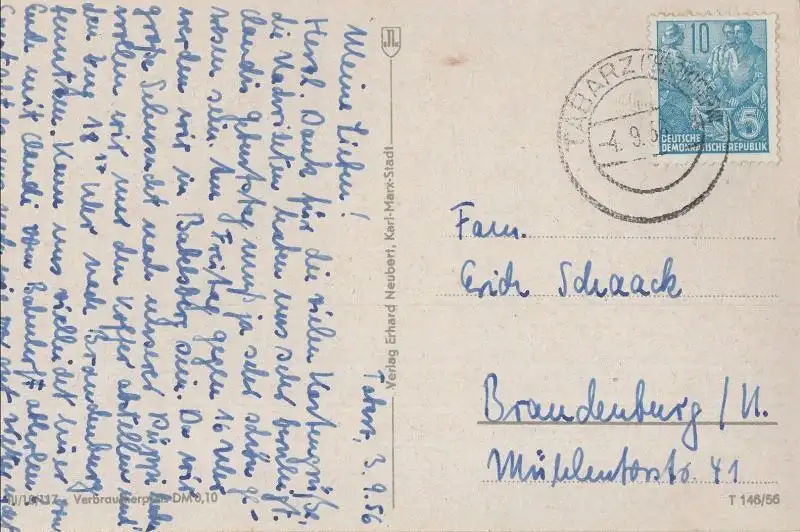 Tabarz, 3.9.56
Meine Lieben!
Herzl. Dank für die vielen Kartengrüße,
die Nachrichten haben uns sehr
Claudis Geburtstag muß ja sehr schön ge-
wesen sein. Am Freitag gegen 16 Uhr
werden wir in Babelsberg sein. Da wir
große Sehnsucht nach unserer Püppi haben
wollen wir nur den Koffer abstellen und
den Zug 18 Uhr nach Brandenburg
benutzen. Kann uns vielleicht einer von
Euch mit Claudi vom Bahnhof abholen.
Verlag Erhard Neubert, Karl-Marx-Stadt
10
5
DEUTSCHE
DEMOKRATISCHE REPUBLIK
TABARZ
-4.9.5
Fam.
Erich Schaack
Brandenburg/H.
Mühlentorstr. 41
Verbraucherpreis DM 0,10
T 146/56